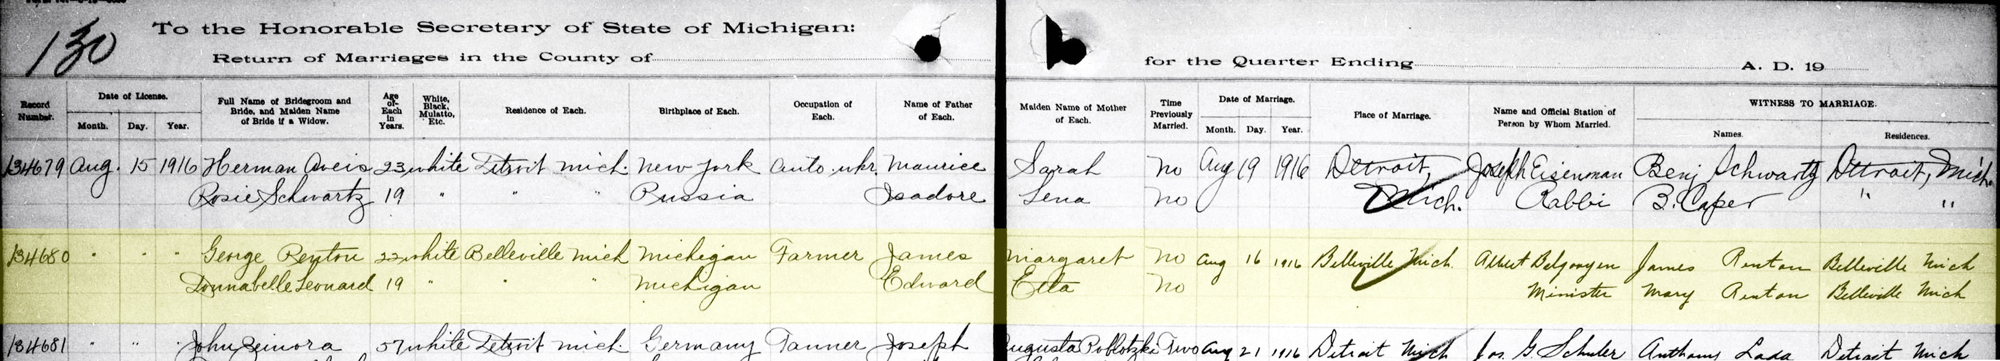 130
To the Honorable Secretary of State of Michigan:
Return of Marriages in the County of
for the Quarter Ending
A. D. 19
Record Number.
Date of License.
Month. Day. Year.
Full Name of Bridegroom and Bride, and Maiden Name of Bride if a Widow.
Age of Each in Years.
White, Black, Mulatto, Etc.
Residence of Each.
Birthplace of Each.
Occupation of Each.
Name of Father of Each.
Maiden Name of Mother of Each.
Time Previously Married.
Date of Marriage.
Month. Day. Year.
Place of Marriage.
Name and Official Station of Person by Whom Married.
WITNESS TO MARRIAGE.
Names. Residences.
134679 Aug. 15 1916 Herman Aveis 23 white Detroit Mich. New York Auto. wkr. Maurice Sarah No Aug 19 1916 Detroit, Joseph Eisenman Benj Schwartz Detroit, Mich.
Rosie Schwartz 19 " " " Russia Isadore Lena No Mich. Rabbi B. Caper " "
134680 " " " George Renton 22 white Belleville Mich Michigan Farmer James Margaret No Aug 16 1916 Belleville Mich. Albert James Renton Belleville Mich
Donnabelle Leonard 19 " " " Michigan Edward Etta No Minister Mary Renton Belleville Mich
134681 " " " John 57 white Detroit Mich. Germany Tanner Joseph Augusta Two Aug 21 1916 Detroit Mich Jos. G. Schuler Anthony Lada Detroit Mich